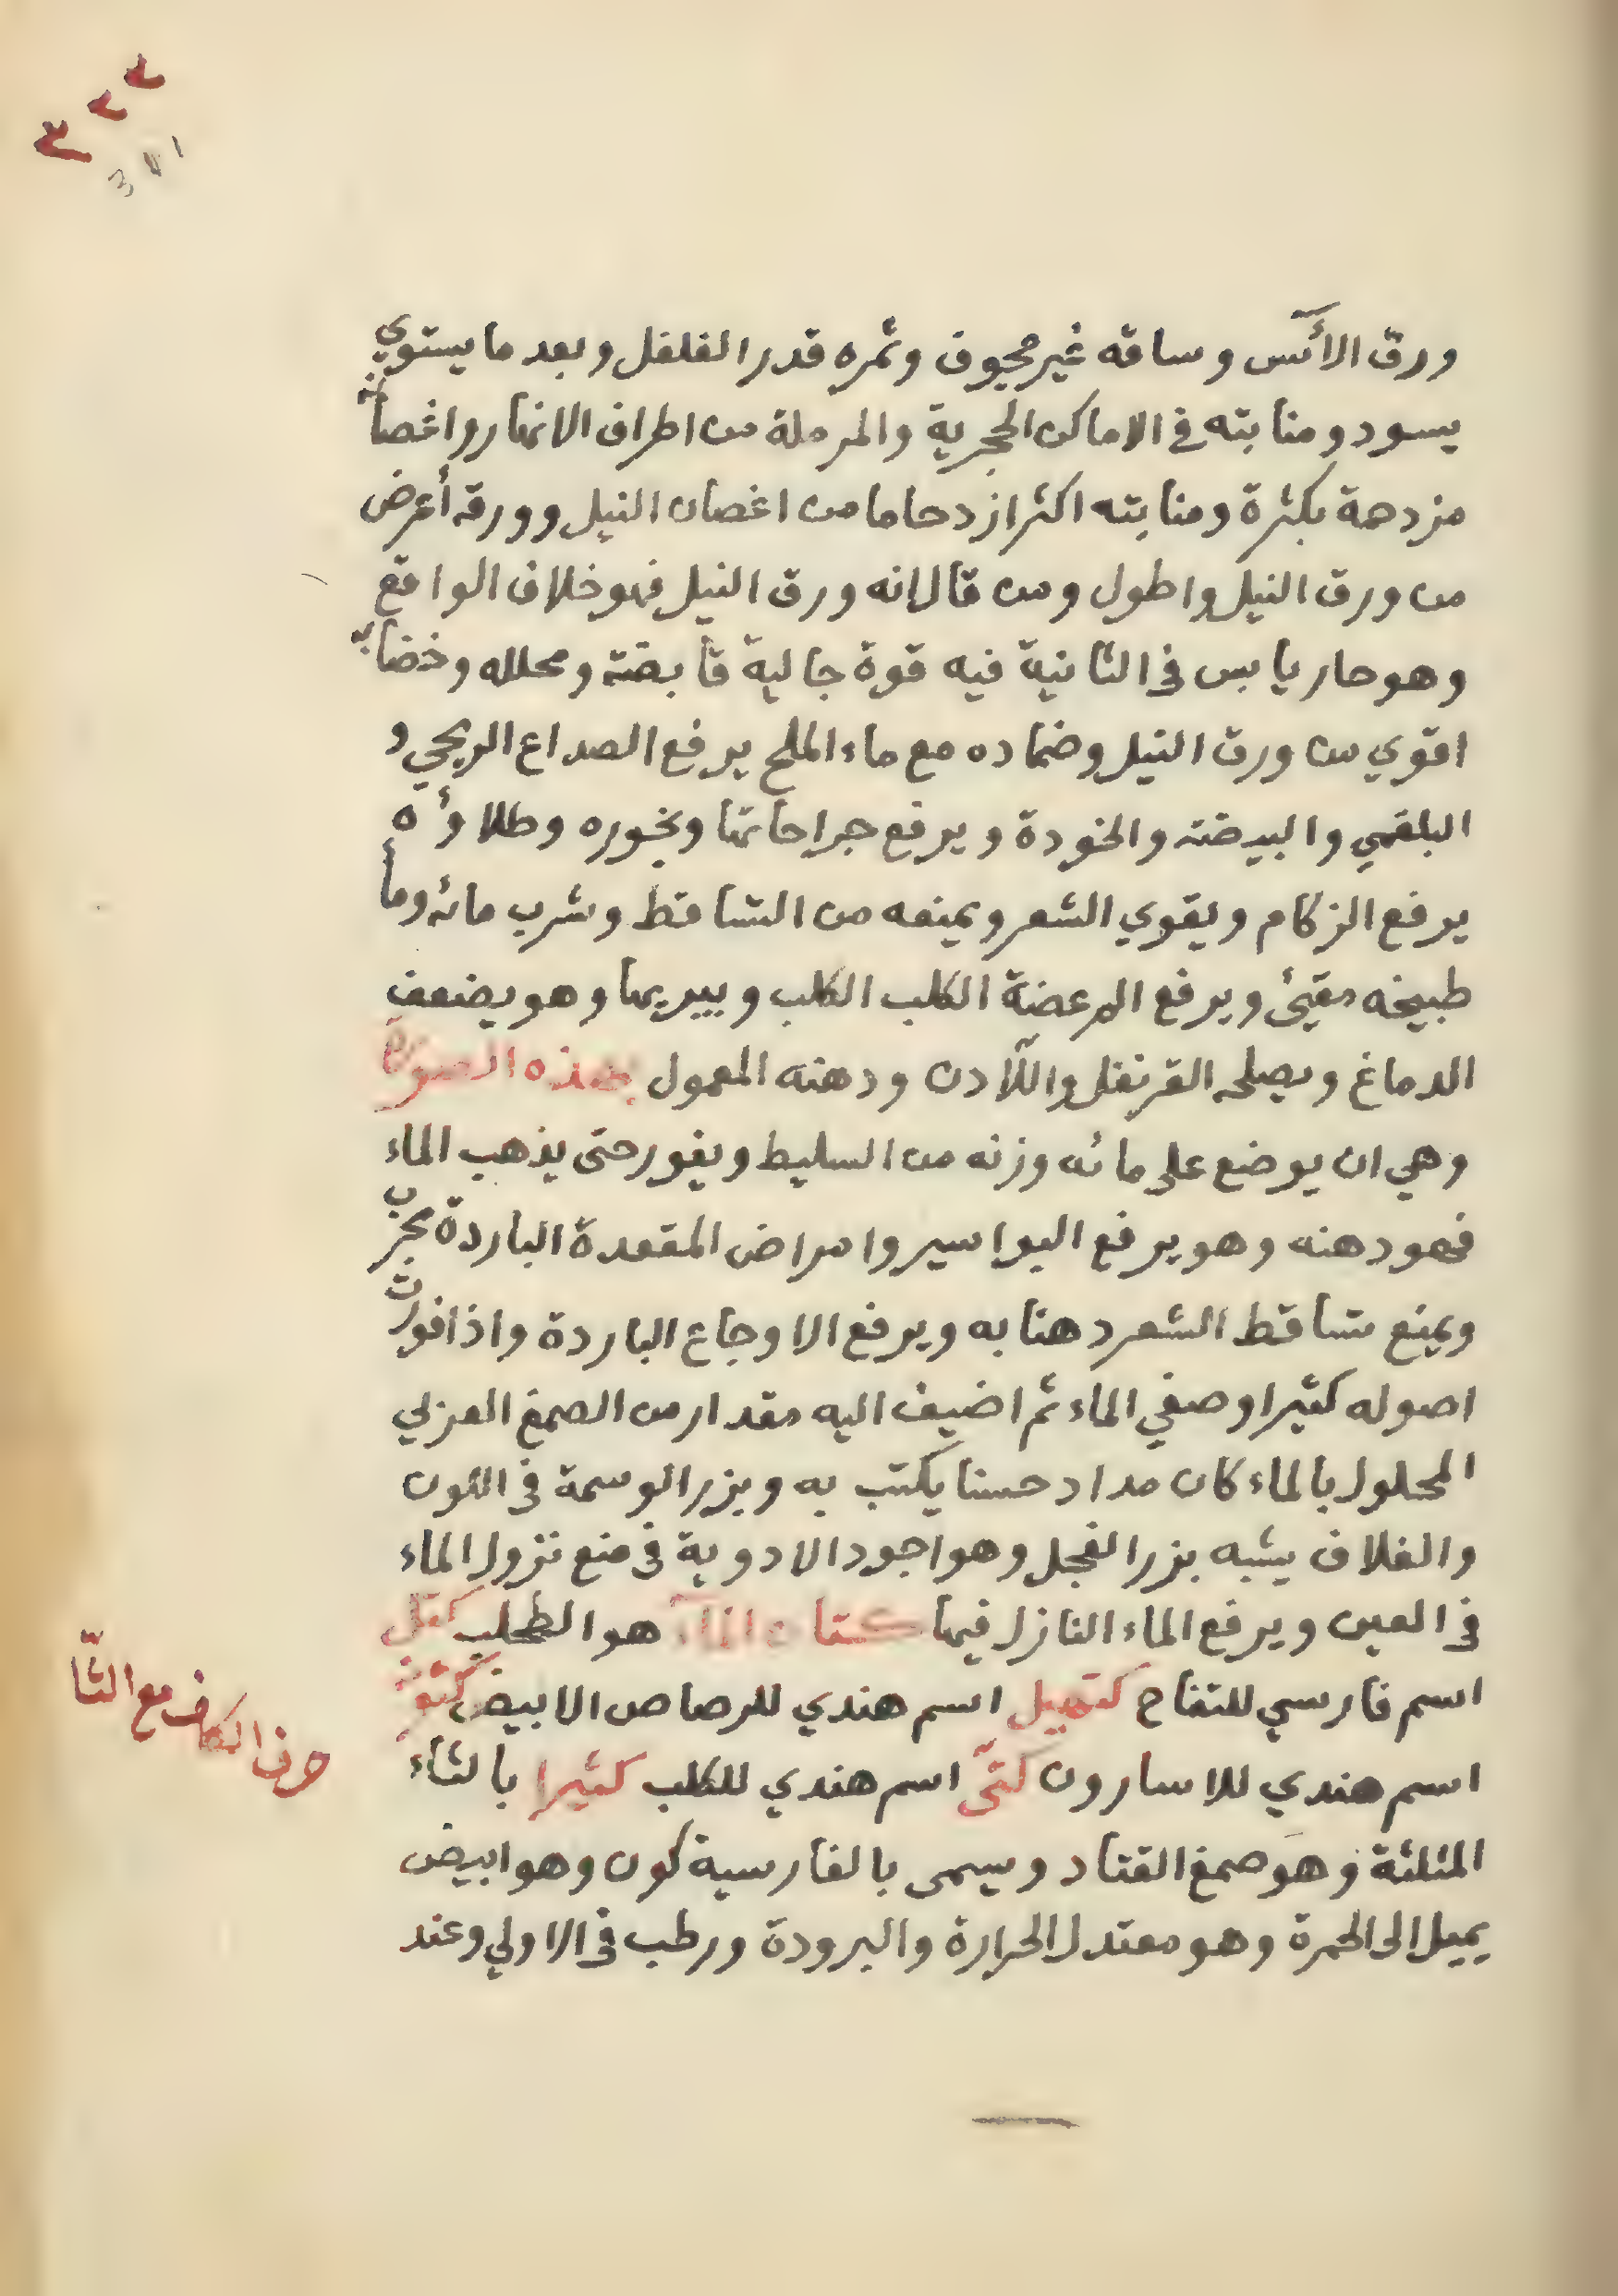 ٣٢٢
٣٧١
ورق الآس وساقه غير مجوف وثمره قدر الفلفل وبعد ما يستوي
يسود ومنابته في الاماكن الحجرية والمرملة من اطراف الانهار واغصانه
مزدهمة بكثرة ومنابته اكثر ازدحاما من اغصان النيل وورقه أعرض
من ورق النيل واطول ومن قال انه ورق النيل فهو خلاف الواقع
وهو حار يابس في الثانية فيه قوة جالية قابضة ومحلله وخضابه
اقوي من ورق النيل وضماده مع ماء الملح يرفع الصداع الريحي و
البلغمي والبيضة والخودة ويرفع جراحاتها وبخوره وطلاؤه
يرفع الزكام ويقوي الشعر ويمنعه من التساقط وشرب مائه وماء
طبيخه مقيئ ويرفع عضة الكلب الكلب ويبريها وهو يضعف
الدماغ ويصلحه القرنفل واللّادن ودهنه المعمول بهذه الصورة
وهي ان يوضع على مائه وزنه من السليط ويفور حتى يذهب الماء
فهو دهنه وهو يرفع البواسير وامراض المقعدة الباردة مجرب
ويمنع تساقط الشعر دهنا به ويرفع الاوجاع الباردة واذا فورت
اصوله كثيرا وصفي الماء ثم اضيف اليه مقدار من الصمغ العزلي
المحلول بالماء كان مداد حسنا يكتب به وبزر الوسمة في اللون
والغلاف يشبه بزر الفجل وهو اجود الادوية في منع نزول الماء
في العين ويرفع الماء النازل فيها كتان الماء هو الطحلب كتل
اسم فارسي للتفاح كتهيل اسم هندي للرصاص الابيض
اسم هندي للاسارون كتّي اسم هندي للكلب كثيرا بالثاء
المثلثة وهو صمغ القتاد ويسمى بالفارسية كون وهو ابيض
يميل الى الحمرة وهو معتدل الحرارة والبرودة ورطب في الاولي وعند
حرف الكاف مع الثّا